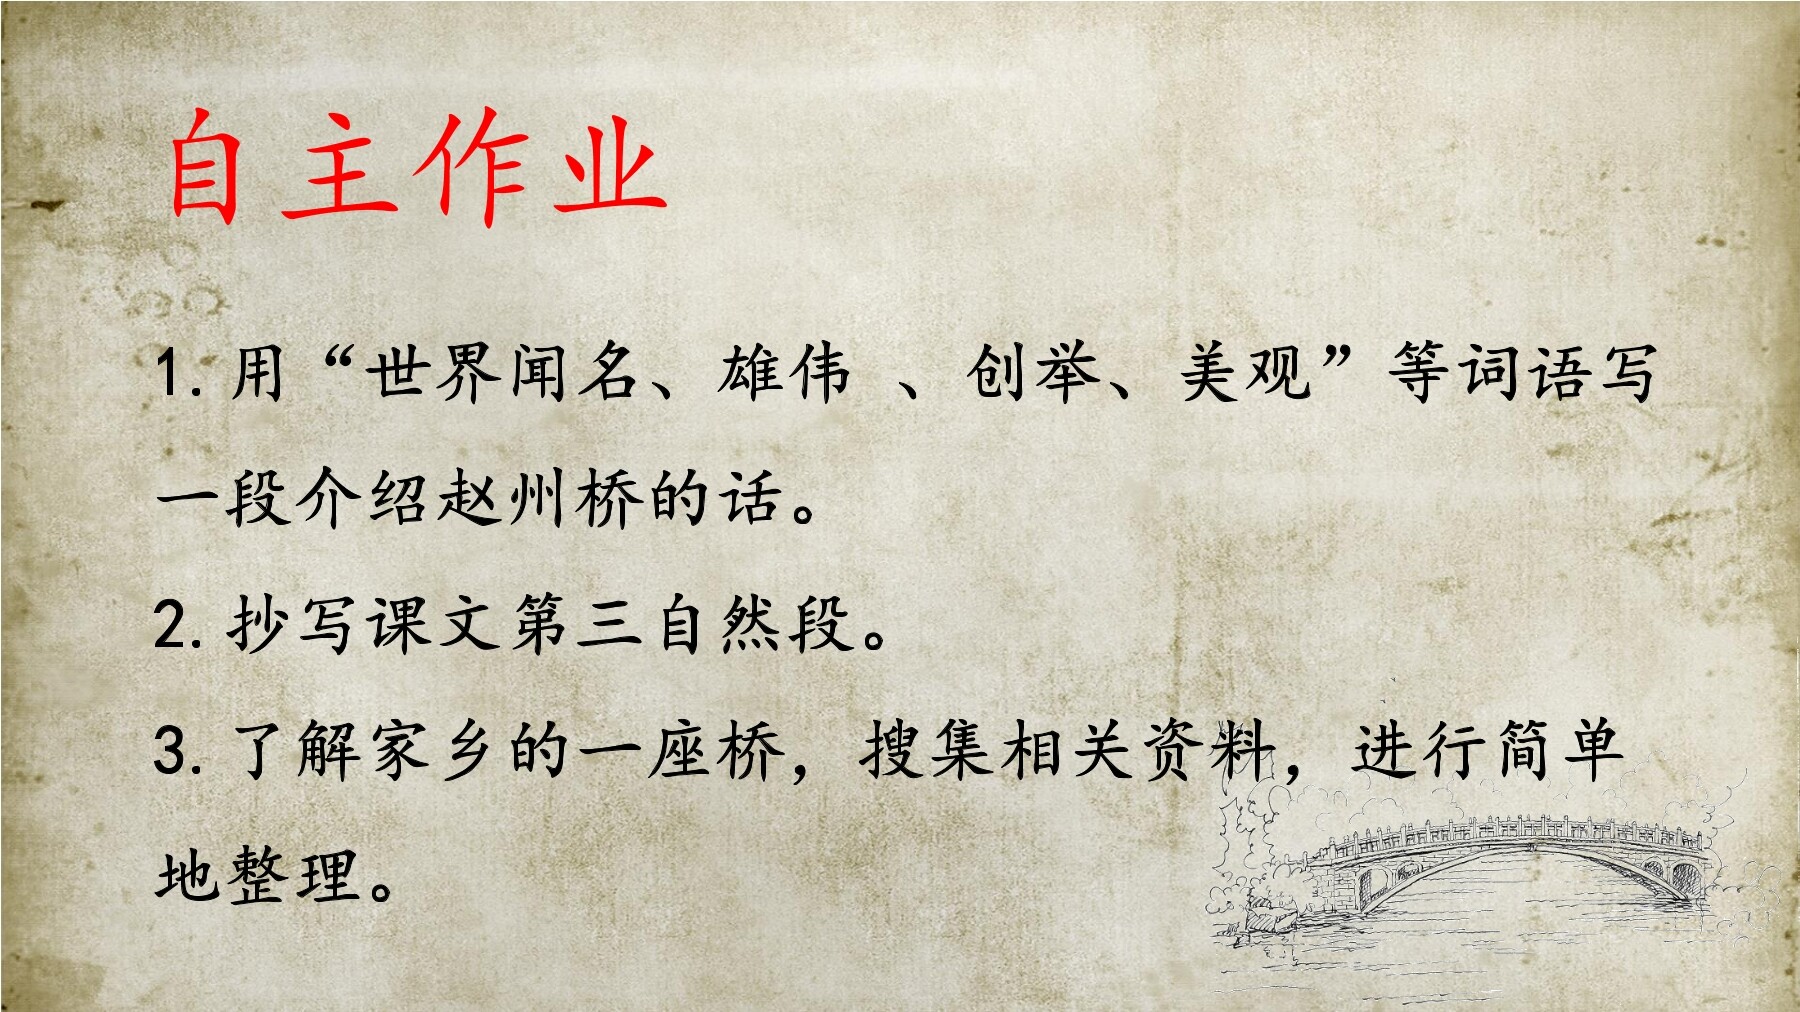 自主作业
1.用“世界闻名、雄伟 、创举、美观”等词语写
一段介绍赵州桥的话。
2.抄写课文第三自然段。
3.了解家乡的一座桥，搜集相关资料，进行简单
地整理。